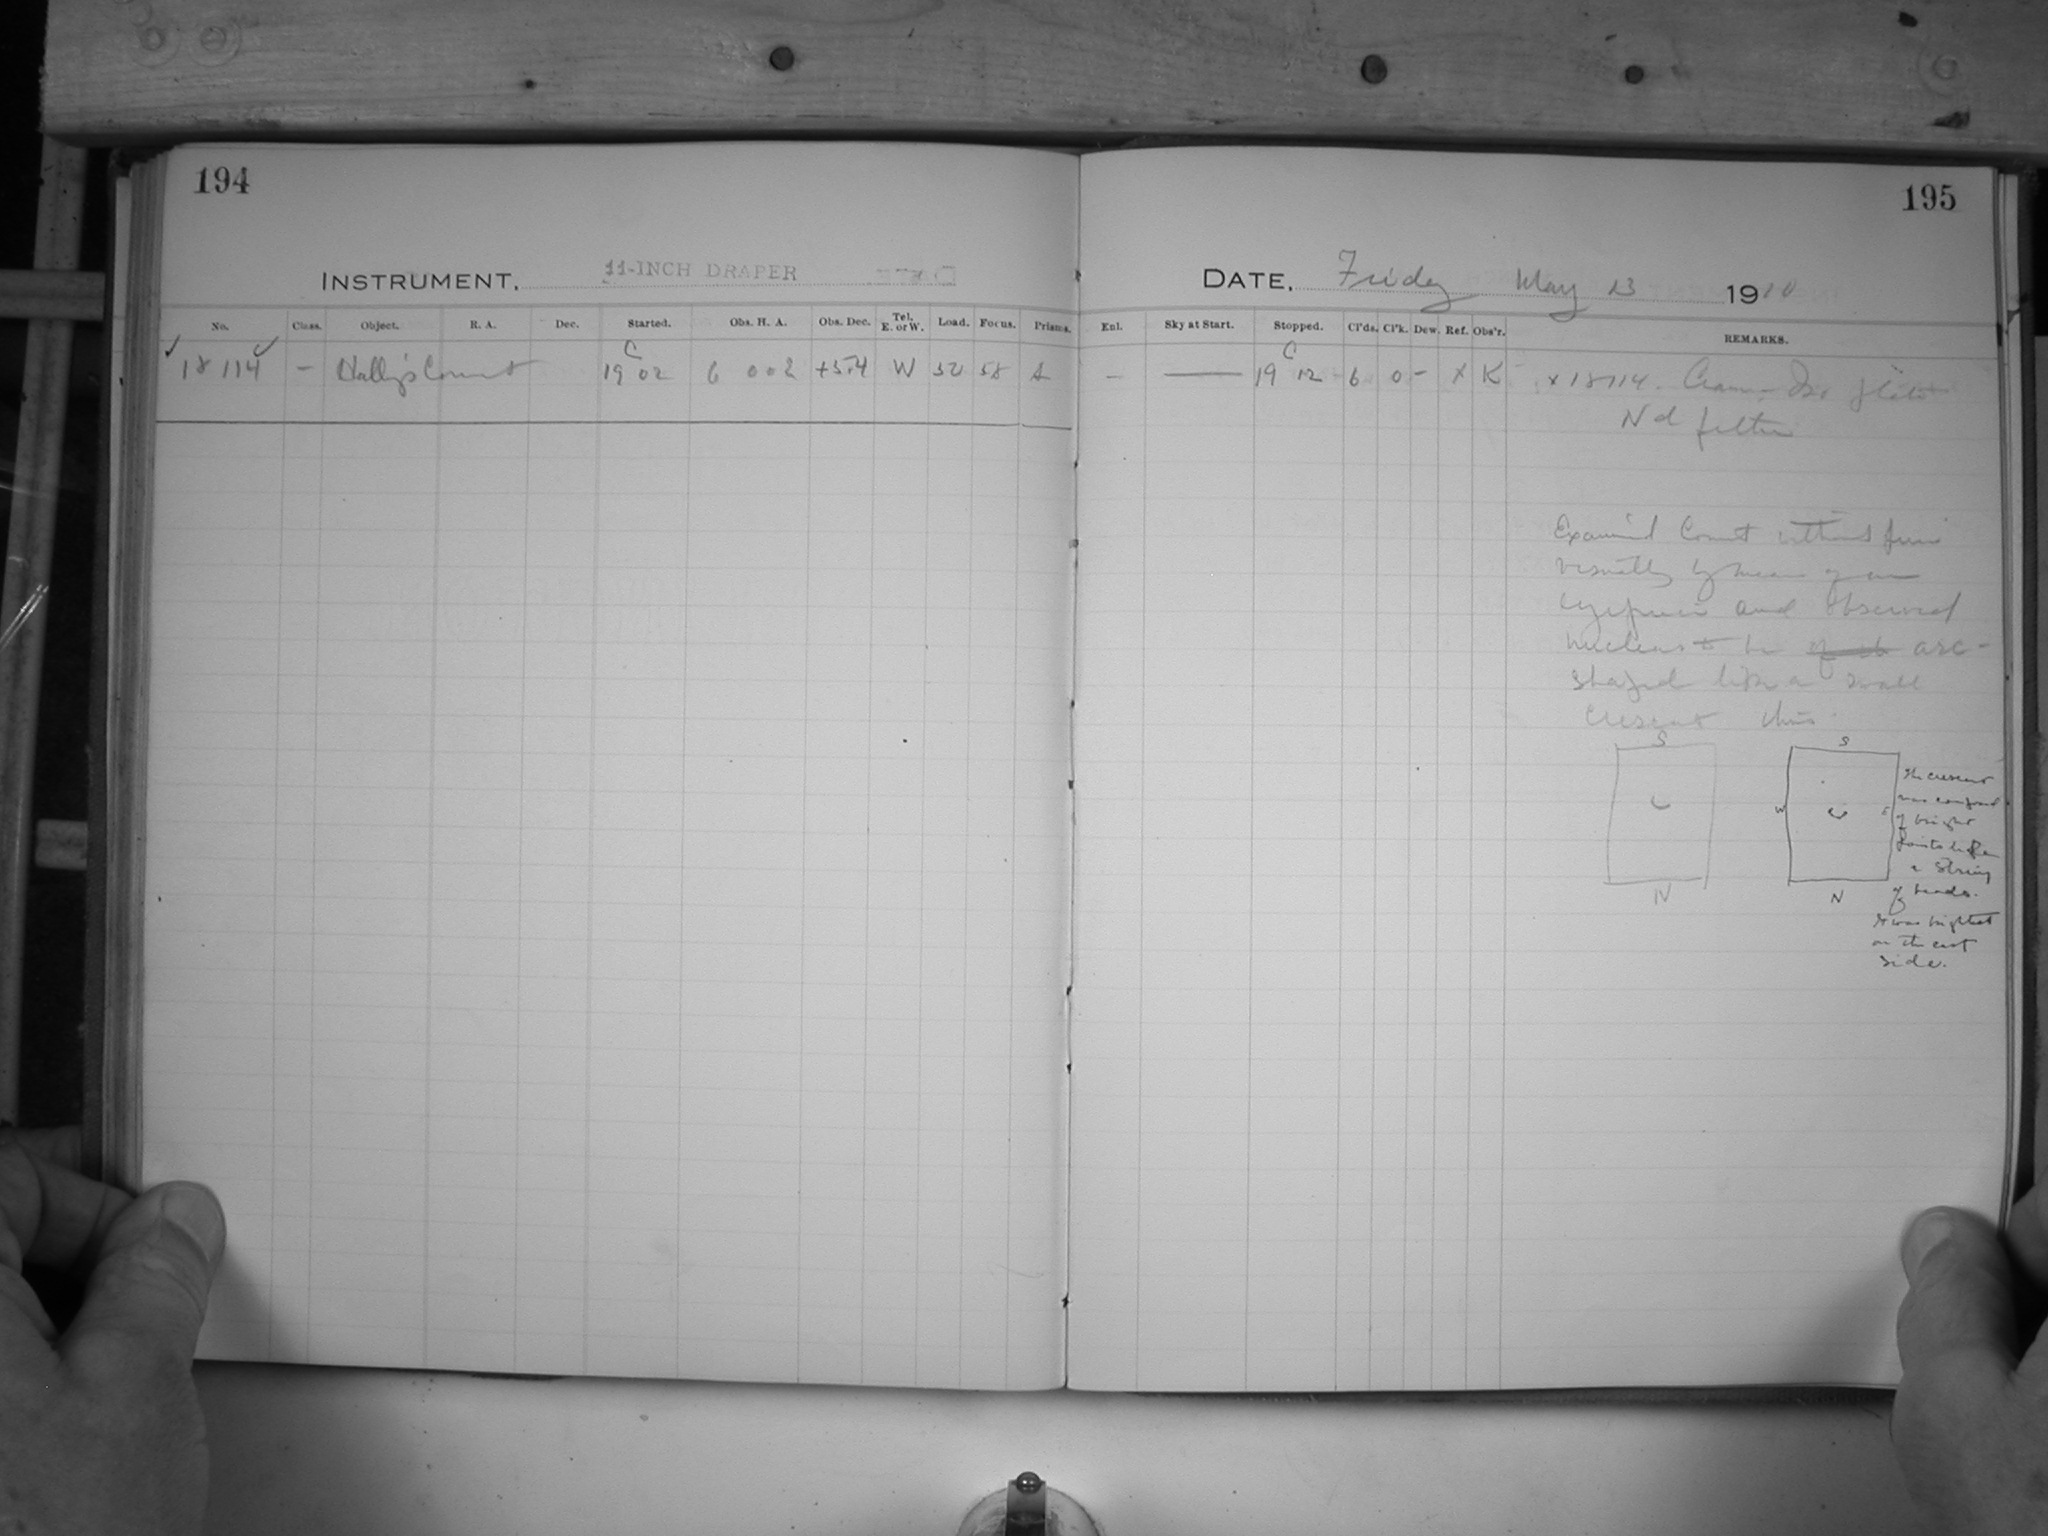 194
195
INSTRUMENT, 11-INCH DRAPER
DATE, Friday May 13 1910
No. Class. Object. R. A. Dec. Started. Obs. H. A. Obs. Dec. Tel. E. or W. Load. Focus. Prisms.
Enl. Sky at Start. Stopped. Cl'ds. Cl'k. Dew. Ref. Obs'r. REMARKS.
18 114 — Hally's Comet 19 C 02 6 00 2 +5.4 W 50 58 A
— — 19 C 12 6 0 - x K x 18114. Cram. Iso plate
Nd filter
Examined Comet without
visually by means of an
eyepiece and observed
nucleus to be arc-
shaped like a small
crescent thus
S
N
S
W
E
N
The crescent
was composed
of bright
points like
a string
of beads.
It was brightest
on the east
side.